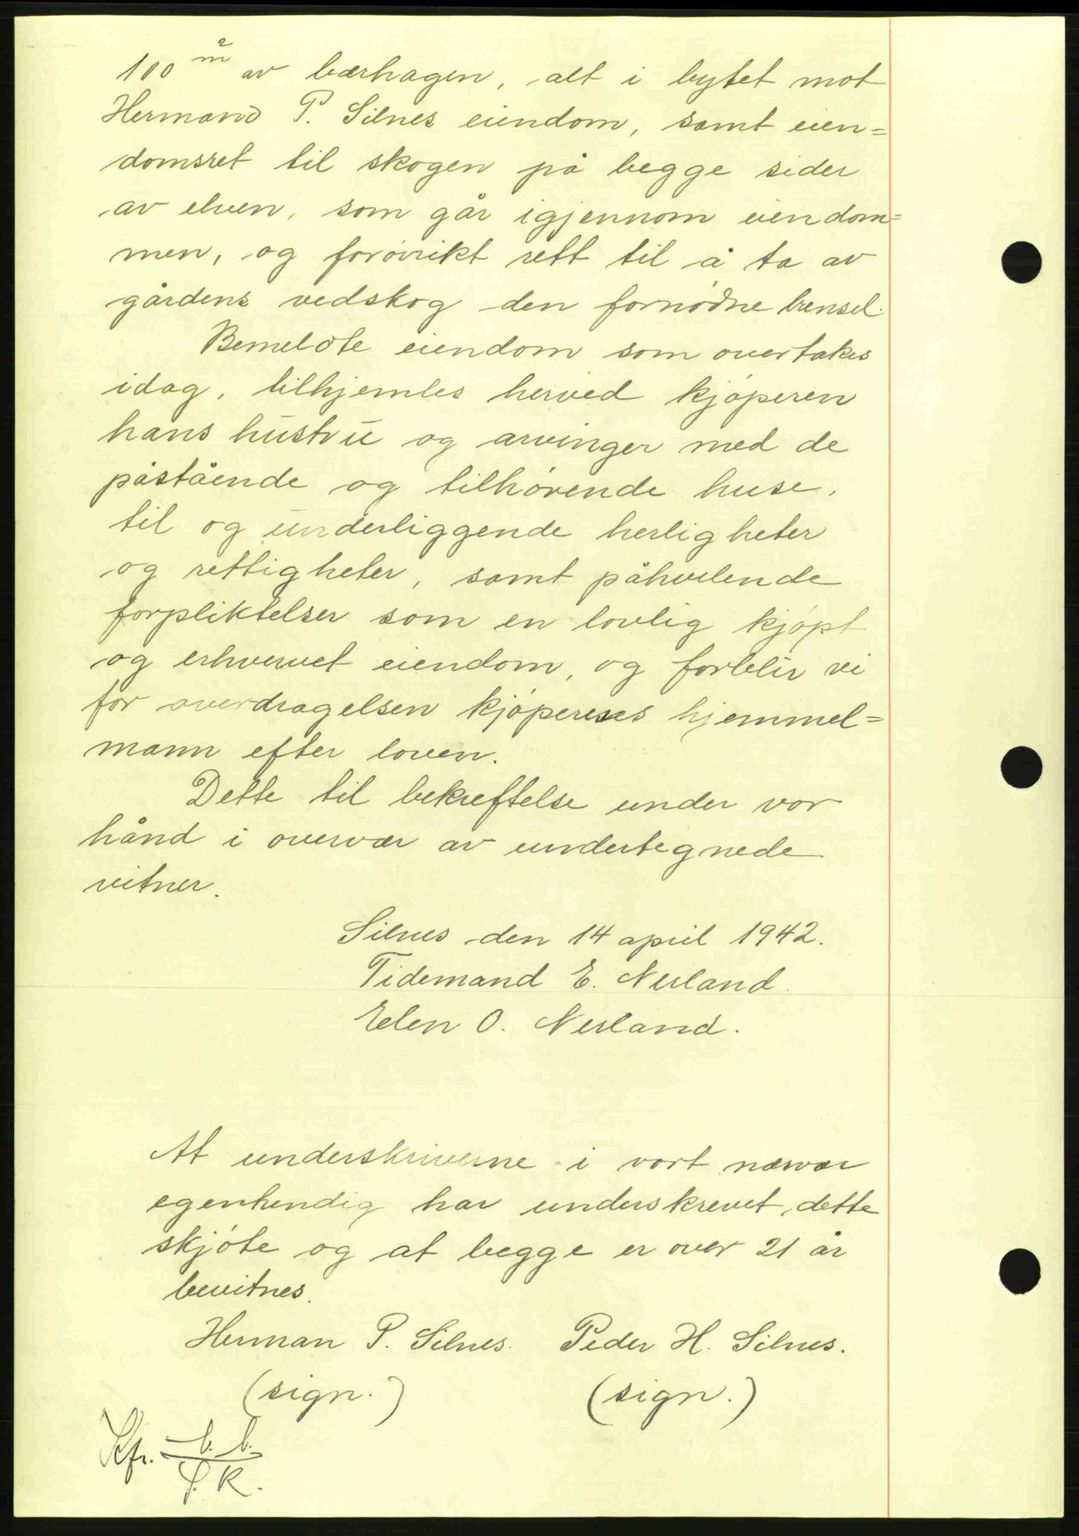 100 m² av bærhagen, alt i bytet mot
Hermand P. Silnes eiendom, samt eien=
domsret til skogen på begge sider
av elven, som går igjennom eiendom=
men, og forøvrikt rett til å ta av
gårdens vedskog den fornødne brensel.
Bemeldte eiendom som overtakes
idag, tilhjemles herved kjøperen
hans hustru og arvinger med de
påstående og tilhørende huse,
til og underliggende herligheter
og rettigheter, samt påhvilende
forpliktelser som en lovlig kjøpt
og erhvervet eiendom, og forblir vi
for overdragelsen kjøperenes hjemmel=
mann efter loven.
Dette til bekreftelse under vor
hånd i overvær av undertegnede
vitner.
Silnes den 14 april 1942.
Tidemand E. Nesland.
Elen O. Nesland.
At underskriverne i vort nærvær
egenhendig har underskrevet dette
skjøte og at begge er over 21 år
bevitnes.
Herman P. Silnes. Peder H. Silnes.
(sign.) (sign.)
Kfr. b. b.
P. K.